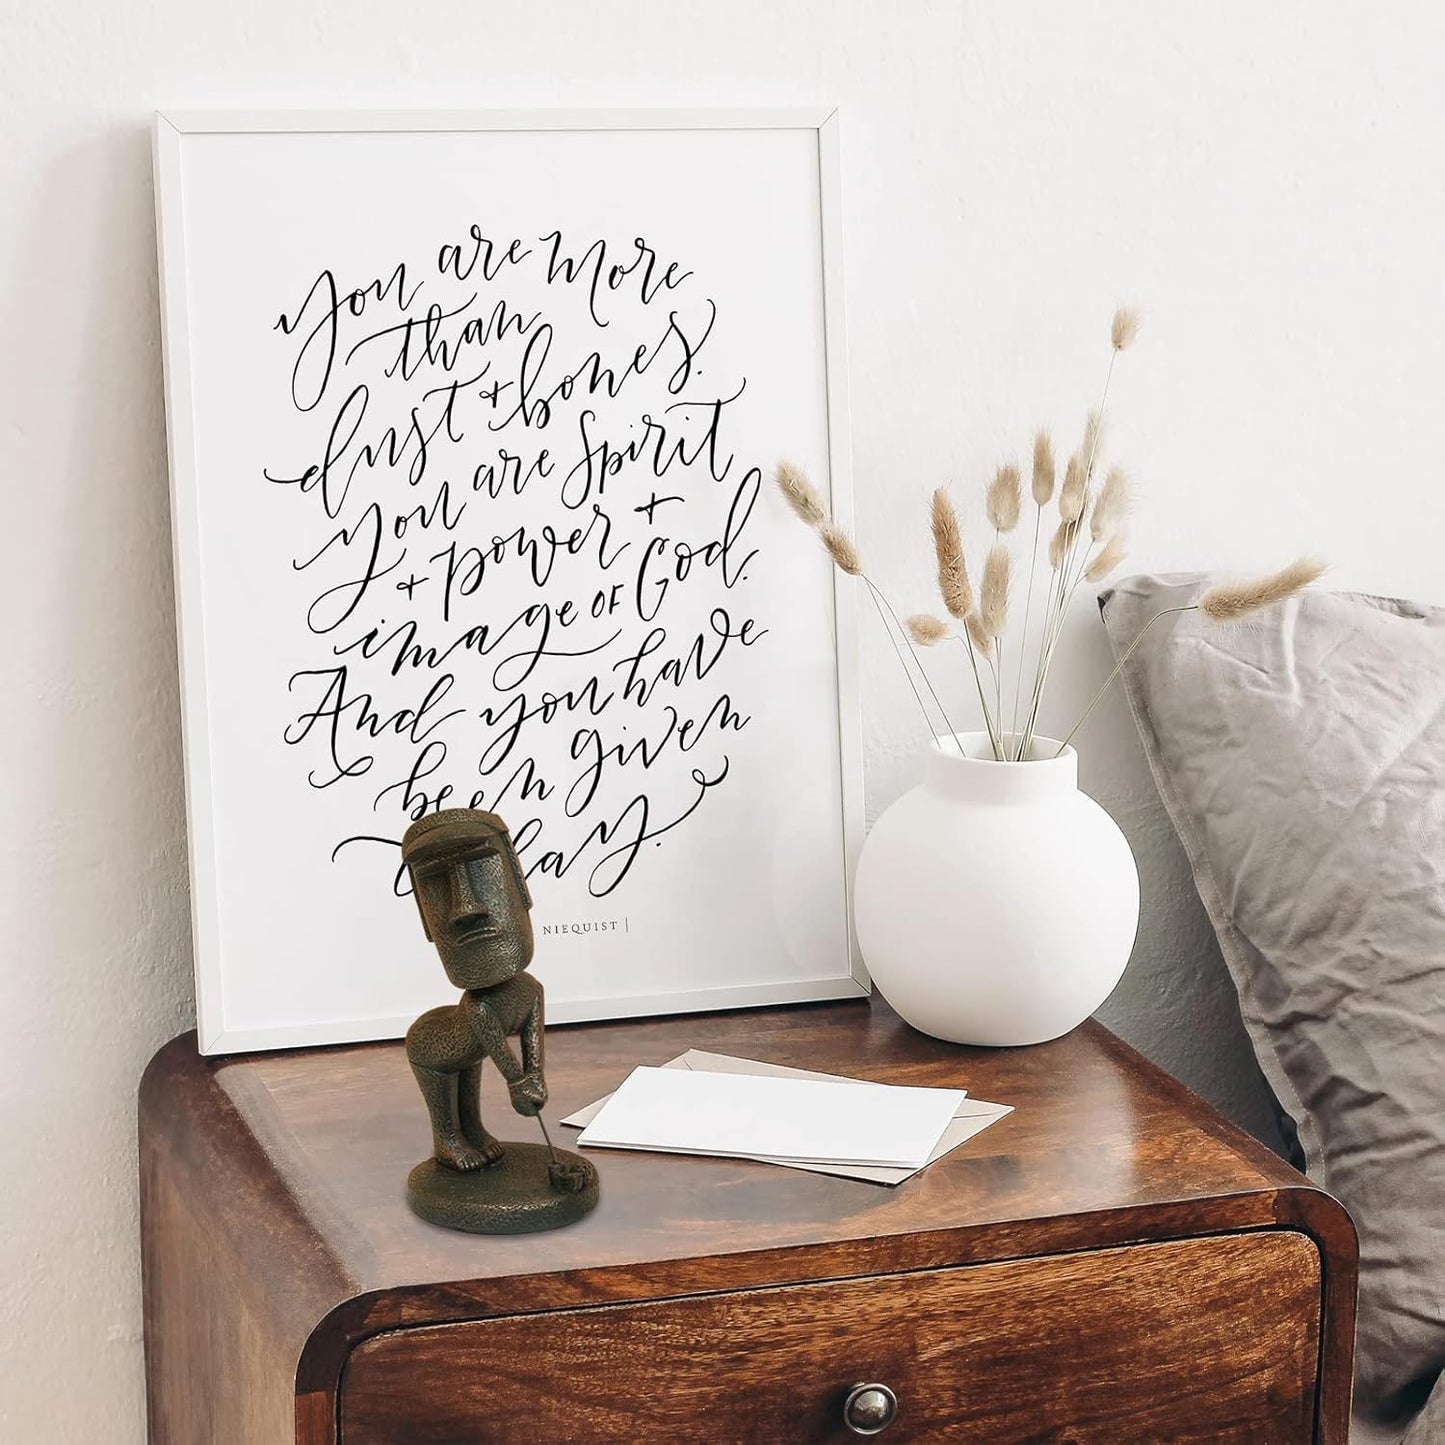 You are more
than
dust + bones.
You are Spirit
+ power +
image of God.
And you have
been given
day.
NIEQUIST |